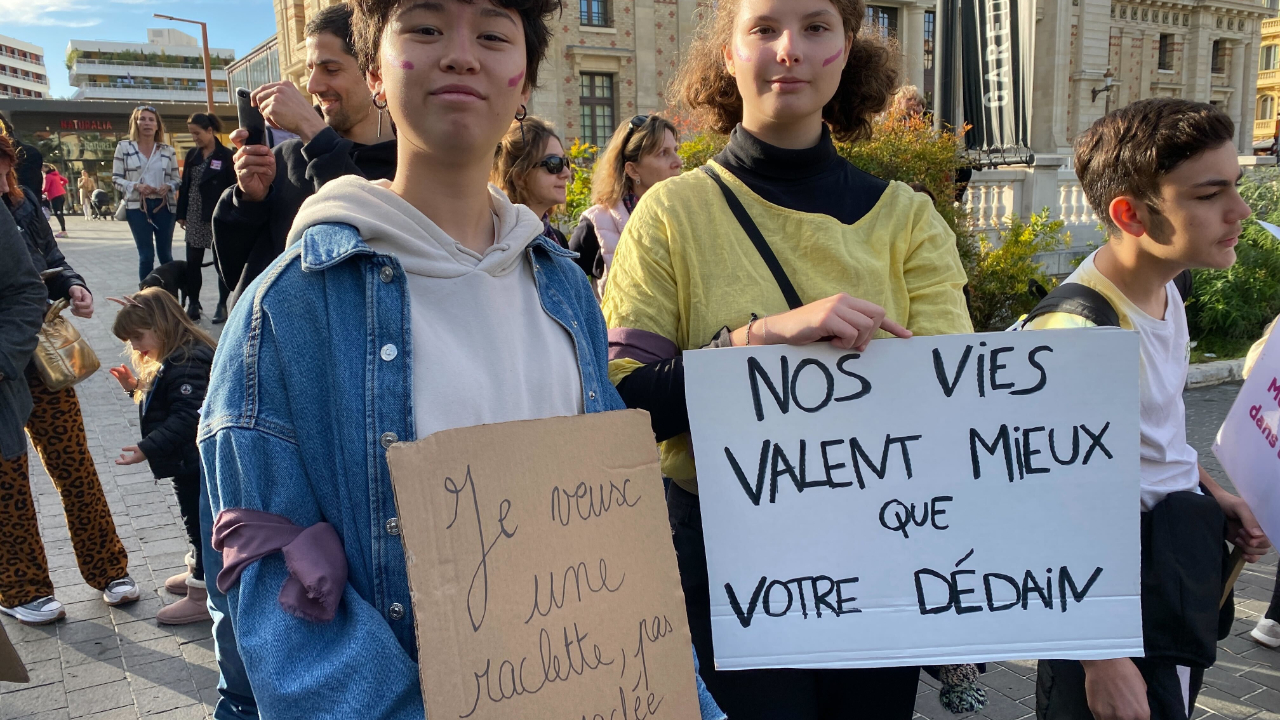 NATURALIA
GARE
Je veux
une
raclette, pas
NOS VIES
VALENT MiEUX
QUE
VOTRE DÉDAiN
dans